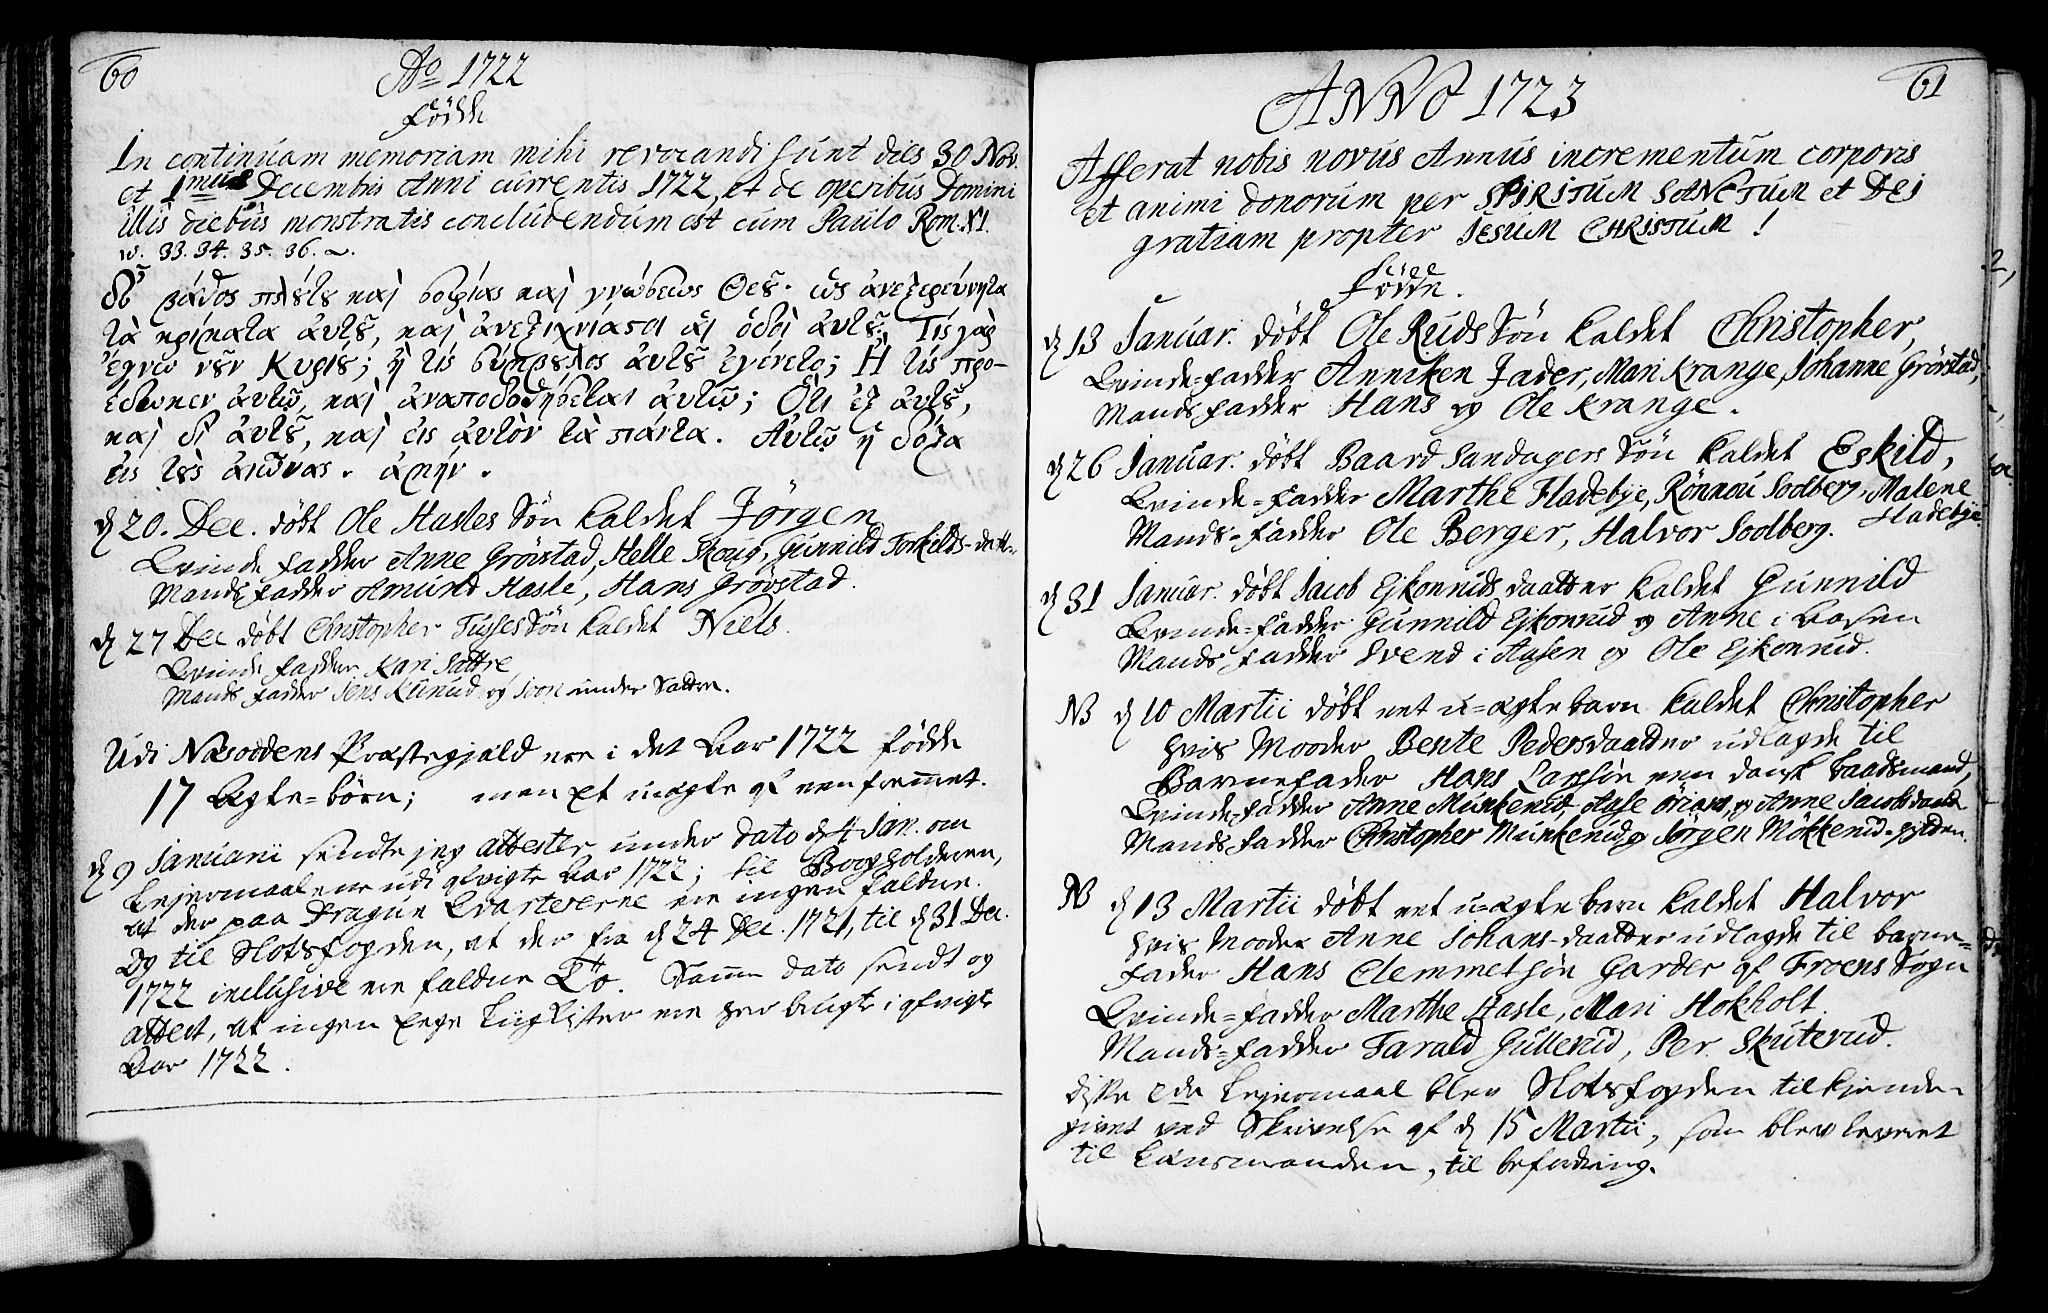 60
Ao 1722
Födde
In continuam memoriam mihi revocandi sunt dies 30 Nov.
et 1mus Decembris Anni currentis 1722, et de operibus Domini
illis diebus monstratis concludendum est cum Paulo Rom. XI.
vv. 33. 34. 35. 36.
Ὦ βάθος πλύτυ καὶ σοφίας καὶ γνώσεως Θεῦ. ὡς ἀνεξερεύνητα
τὰ κρίματα ἀυτῦ, καὶ ἀνεξιχνίαστοι ἁι ὁδοὶ ἀυτῦ. Τίς γὰρ
ἔγνω νῦν Κυρίυ; ἢ τίς σύμβυλος ἀυτῦ ἐγένετο; Ἢ τίς προ-
έδωκεν ἀυτῷ, καὶ ἀνταποδοθήσεται ἀυτῷ; Ὅτι ἐξ ἀυτῦ,
καὶ δἰ ἀυτῦ, καὶ ἐις ἀυτὸν τὰ πάντα. Ἀυτῷ ἡ δόξα
ἐις τὺς ἀιῶνας. ἀμήν.
d 20. Dec. döbt Ole Hasles Sön kaldet Jörgen
Qvinde fadder Anne Gröstad, Helle Skoug, Gunnild Torkilds-datter
Mands fadder Amund Hasle, Hans Gröstad.
d 27 Dec döbt Christopher Tusses Sön kaldet Niels.
Qvinde fadder Kari Sættre
Mands fadder Jens Kunud og Joon under Sættre.
Udi Næsoddens Præstegjæld ere i det Aar 1722 födde
17 Ægte-börn; men et uægte af een fremmet.
d 9 Januarii sendte jeg attester under dato d 4 Jan. om
Lejermaalene udi afvigte Aar 1722; til Bogholderen,
at der paa Dragun Qvartererne ere ingen faldne.
Og til Slotsfogden, at der fra d 24 Dec. 1721, til d 31 Dec.
1722 inclusive ere faldne To. Samme dato sendt og
attest, at ingen Eege Liigkister ere her brugte i afvigte
Aar 1722.
61
ANNO 1723
Afferat nobis novus Annus incrementum corporis
et animi donorum per SPIRITUM SANCTUM et Dei
gratiam propter JESUM CHRISTUM!
Födde.
d 13 Januar. döbt Ole Ruds Sön kaldet Christopher,
Qvinde-fadder Anniken Jader, Mari Krange, Johanne Gröstad,
Mands fadder Hans og Ole Krange.
d 26 Januar. döbt Baard Sandagers Sön kaldet Eskild,
Qvinde-fadder Marthe Fladebye, Rönnou Sodberg, Malene
Fladebye
Mands-fadder Ole Berger, Halvor Sodberg.
d 31 Januar. döbt Jacob Ejkonruds daatter kaldet Gunnild
Qvinde-fadder Gunnild Ejkonrud og Anne i Aasen
Mands fadder Svend i Aasen og Ole Ejkonrud.
NB d 10 Martii döbt eet u-ægte barn kaldet Christopher
hvis Mooder Bente Pedersdaatter udlagde til
Barnefader Hans Larsön een dansk baadsmand,
Qvinde-fadder Anne Munkerud, Aase Örians, og Anne Jacobsdaatt.
Mands fadder Christopher Munkerud og Jörgen Mökkerud-hytten.
NB d 13 Martii döbt eet u-ægte barn kaldet Halvor
hvis Mooder Anne Johans-daatter udlagde til barne-
fader Hans Clemmetsön Garder af Froens Sogn
Qvinde-fadder Marthe Hasle, Mari Hokholt.
Mands-fadder Tarald Gullerud, Per Skuterud.
Disse 2de Lejermaal blev Slotsfogden tilkjende-
givet ved Skrivelse af d 15 Martii, som blev leveret
til Lænsmanden, til befordring.